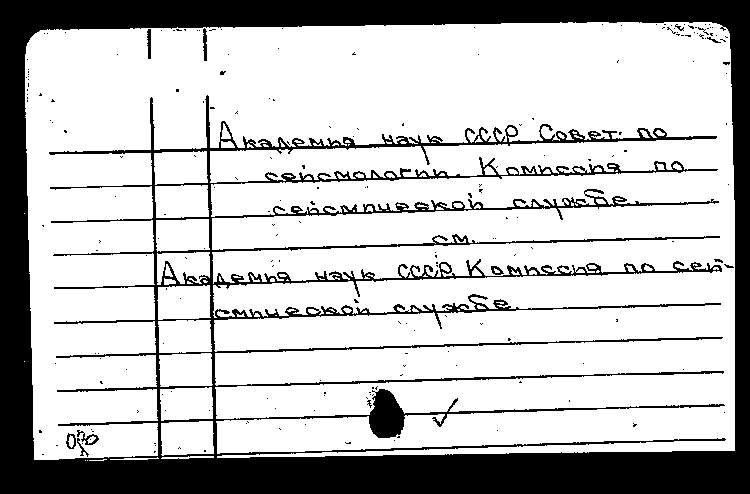 Академия наук СССР Совет по
сейсмологии. Комиссия по
сейсмической службе.
см.
Академия наук СССР. Комиссия по сей-
смической службе.